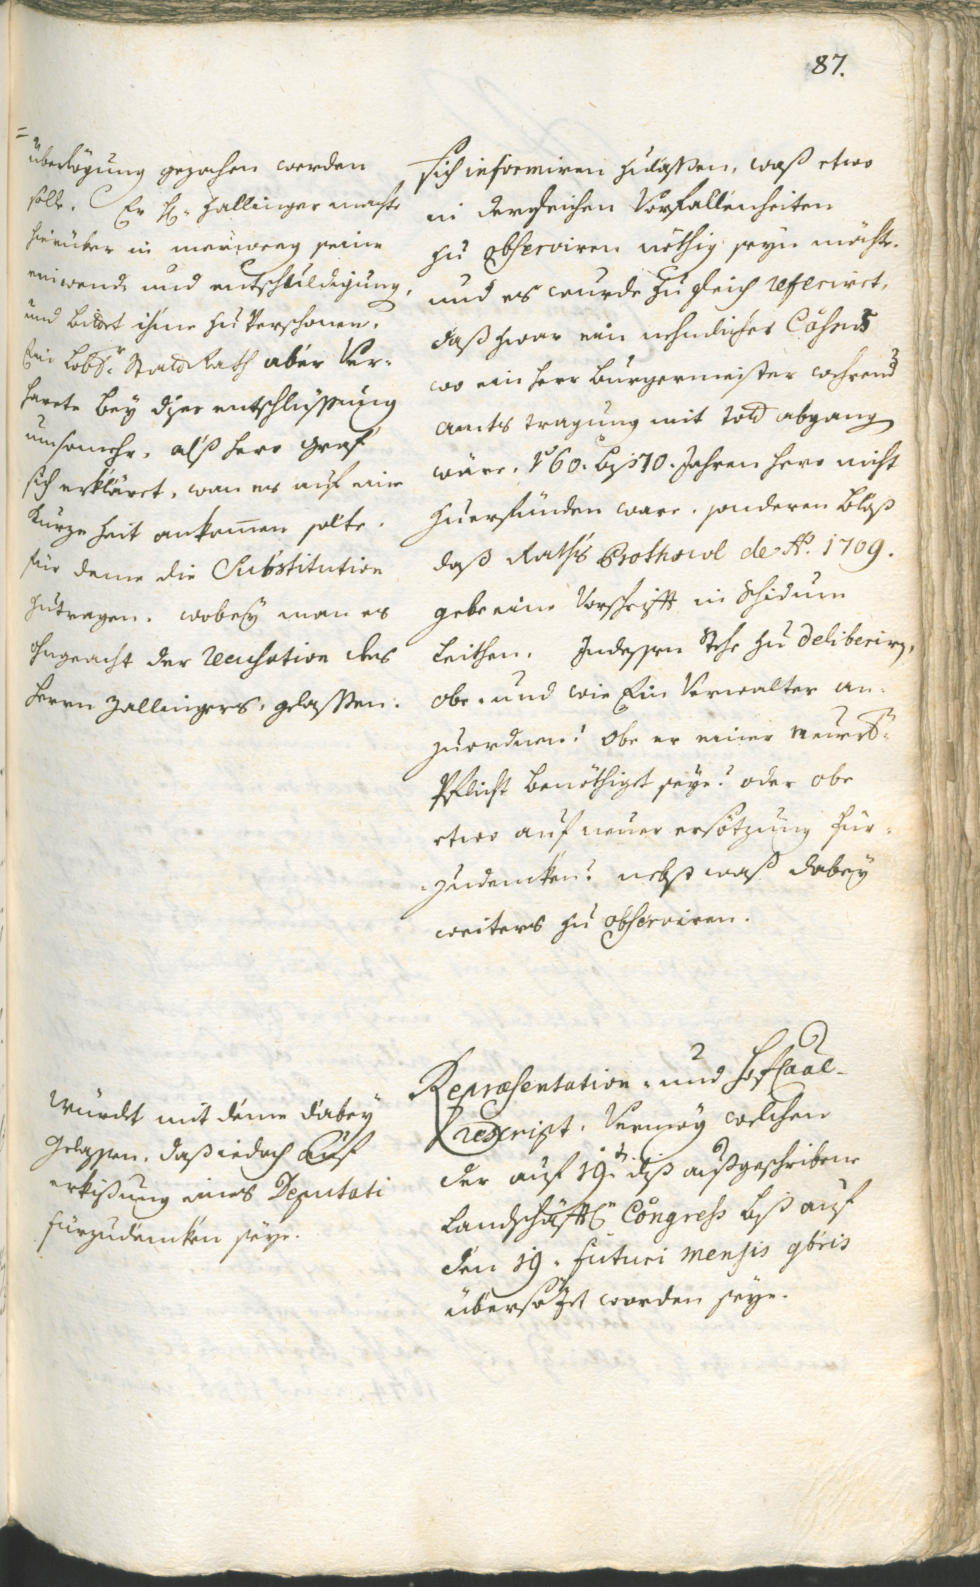 87.
überlegung gezochen werden
solle. Er H: Zallinger machte
hierüber in meürweeg seine
einwendt und entschuldigung,
und bittet ihme zu verschonen.
Ein Löbl: StattRath aber ver-
harete bey diser entschlüssung
umsomehr, alß herr Graf
sich erkläret, wan es auf eine
kurze Zeit ankomen solte.
für deme die Substitution
zutragen. wobey man es
ohngeacht der recusation des
herrn Zallingers, gelassen.
sich informiren zulassen, waß etwo
in dergleichen Vorfallenheiten
zu observiren nöthig seyn möchte.
und es wurde zugleich referiret,
daß zwar ein nehmlicher Cåsus
wo ein herr Burgermeister wehrend
amts tragung mit Todt abgang
wäre, 60. biß 70. Jahren hero nicht
zuerfunden ware. sonderen bloß
daß Raths Prothocol de Aº. 1709.
gebe eine Vorschrifft in
Leithen. Indessen Stehe zu deliberirn,
obe, und wie Ein Verwalter an-
zuordnen? obe er einer
Pflicht benöthiget seye? oder obe
etwo auf neuer ersötzung für-
zudencken? nebst waß dabey
weiters zu observiren.
Würdet mit deme dabey
gelassen, daß iedoch auf
erkißung eines Deputati
fürzudencken seye.
Repræsentation- und HofCaal-
rescript. Vermög welchen
der auf 19.t diß außgeschribene
Landschafftl: Congress biß auf
den 19. futuri mensis 9bris
übersözt worden seye.